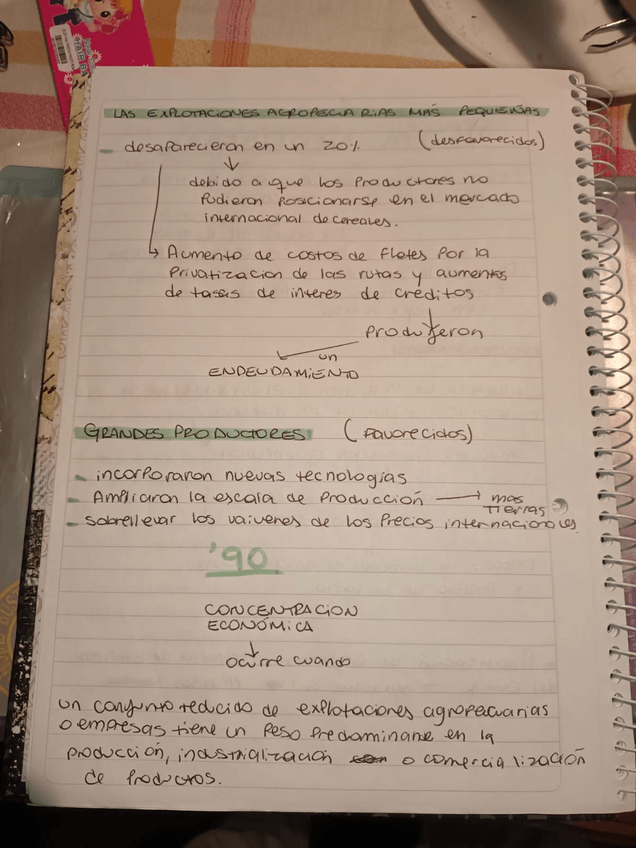 LAS EXPLOTACIONES AGROPECUARIAS MAS PEQUEÑAS
- desaparecieron en un 20% (desfavorecidos)
↓
debido a que los Productores no
Pudieron Posicionarse en el mercado
internacional de cereales.
↳ Aumento de costos de fletes Por la
Privatización de las rutas y aumentos
de tasas de interes de creditos
↓
Produjeron
un
ENDEUDAMIENTO
GRANDES PRODUCTORES (Favorecidos)
- incorporaron nuevas tecnologías
- Ampliaron la escala de Producción → mas
Tierras
- sobrellevar los vaivenes de los Precios internacionales.
'90
CONCENTRACION
ECONÓMICA
↓
ocurre cuando
un conjunto reducido de explotaciones agropecuarias
o empresas tiene un Peso Predominane en la
Producción, industrialización o comercialización
de Productos.